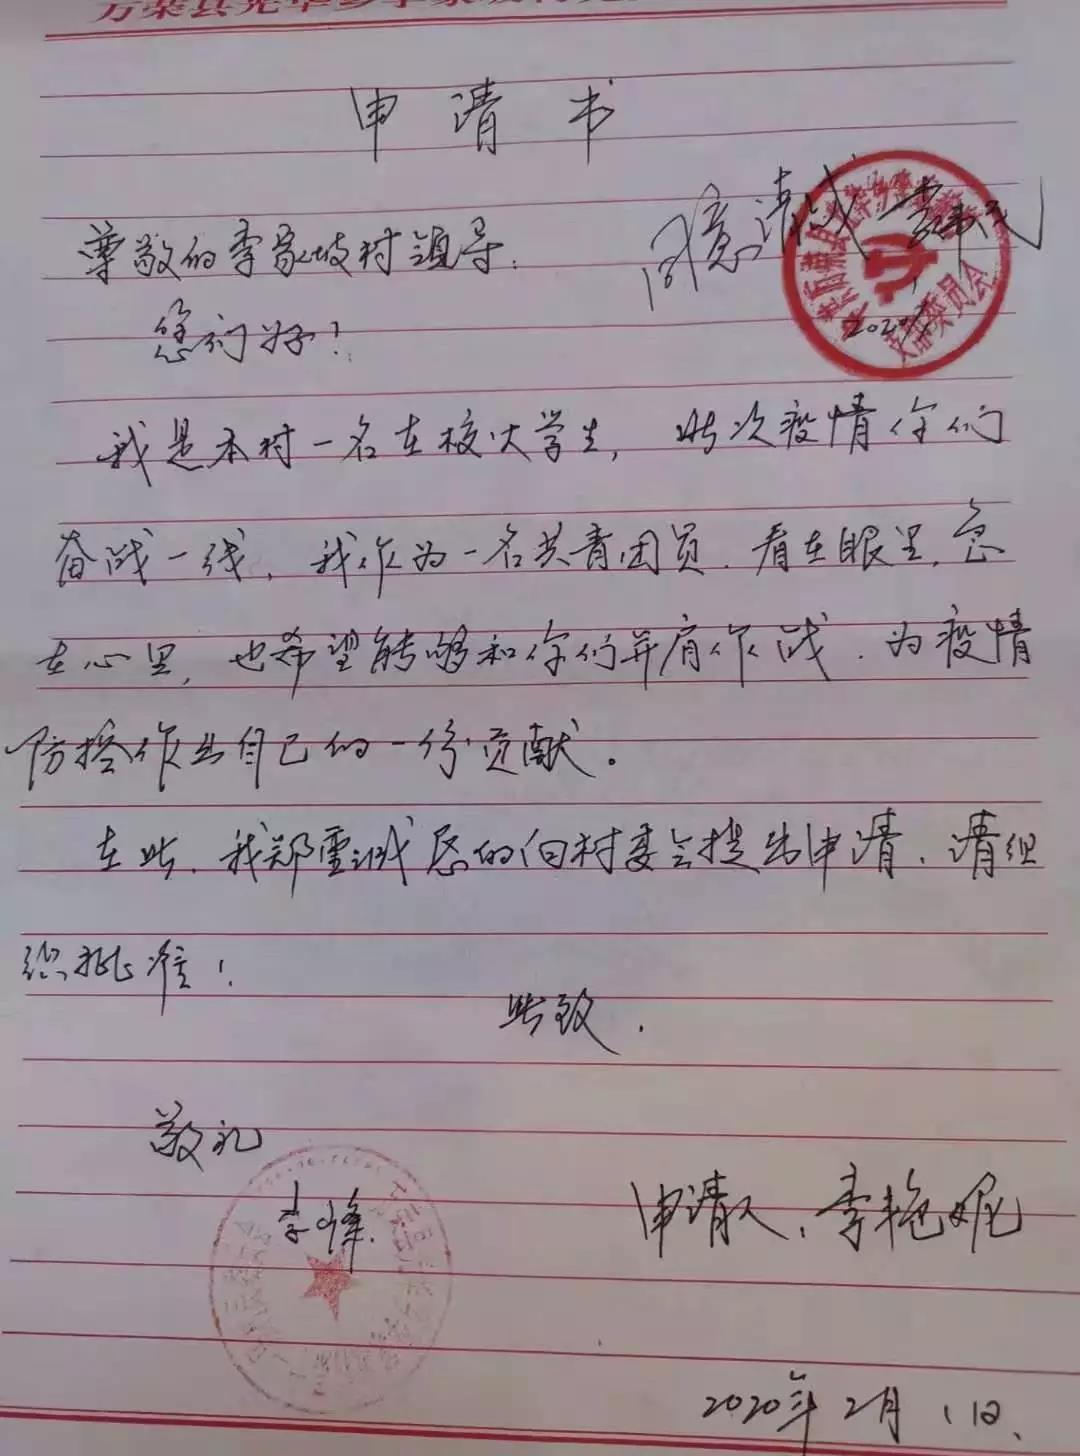 申请书
同意请战
尊敬的李家坡村领导:
2020
支部委员会
您们好!
我是本村一名在校大学生,此次疫情你们
奋战一线,我作为一名共青团员.看在眼里,急
在心里,也希望能够和你们并肩作战.为疫情
防控作出自己的一份贡献。
在此.我郑重诚恳的向村委会提出申请.请组
织批准!
此致.
敬礼
李峰.
申请人:李艳妮
2020年2月1日.